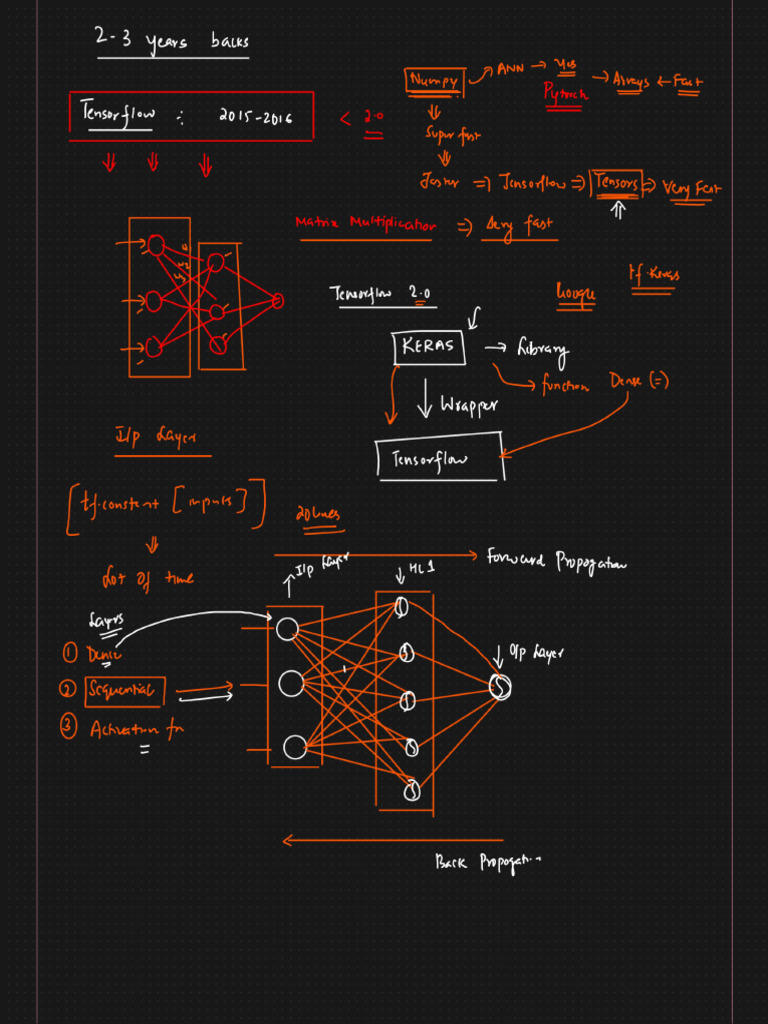 2-3 years backs
Numpy → ANN → Yes → Arrays ← Fast
Pytorch
Tensorflow : 2015-2016 < 2.0
Super fast
Faster ⇒ Tensorflow ⇒ Tensors ⇒ Very Fast
Matrix Multiplication ⇒ Very fast
tf.Keras
Tensorflow 2.0
Google
KERAS → Library
function Dense (=)
Wrapper
I/p Layer
Tensorflow
[tf.constant [inputs]]
20 lines
Forward Propogation
I/p Layer
HL1
Lot of time
Layers
① Dense
O/p Layer
② Sequential
③ Activation fn
=
Back Propogation